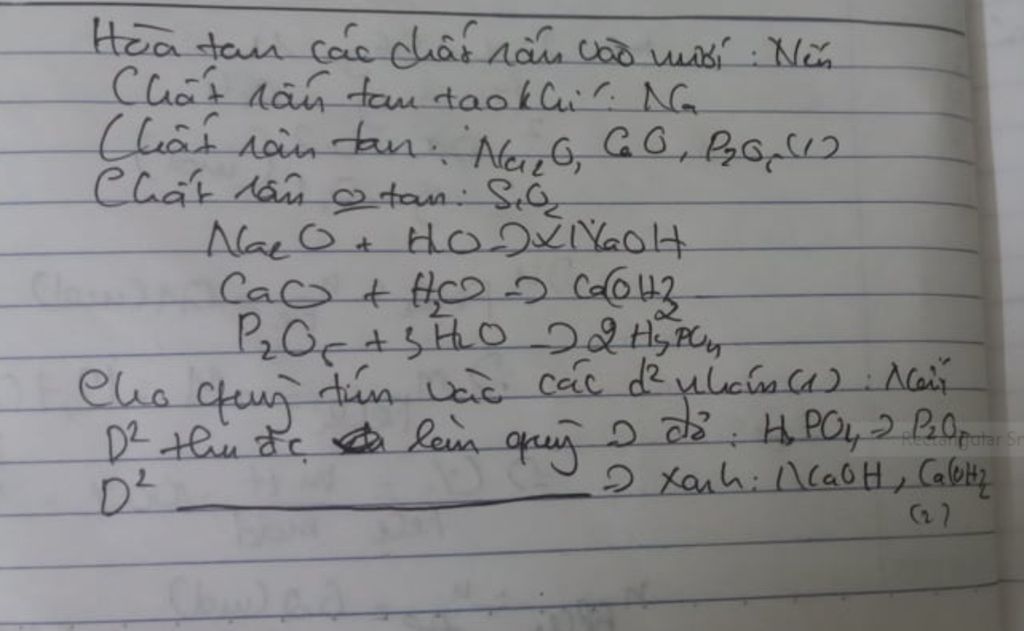 Hòa tan các chất rắn vào nước : Nếu
Chất rắn tan tạo khí : Na
Chất rắn tan : Na2O, CaO, P2O5 (1)
Chất rắn o tan : SiO2
Na2O + HO → 2NaOH
CaO + H2O → Ca(OH)2
P2O5 + 3H2O → 2H3PO4
Cho quỳ tím vào các d² nhóm (1) : Nếu
D² thu đc làm quỳ → đỏ : H3PO4 → P2O5
D² → xanh : NaOH, Ca(OH)2
(2)